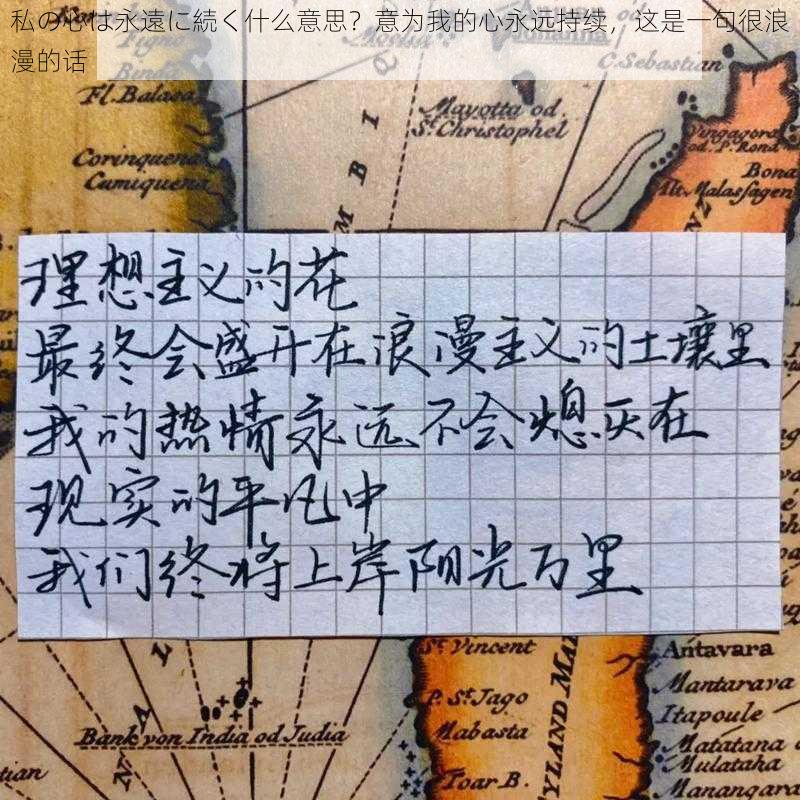 私の心は永遠に続く什么意思？意为我的心永远持续，这是一句很浪
漫的话
Fl. Balaea
C. Sebastian
Mayotta od.
St. Christophel
Corinquena
Cumiquena
MBI
Vingagora
od. P. Rona
Bona
Mt. Malasfagen
理想主义的花
最终会盛开在浪漫主义的土壤里
我的热情永远不会熄灭在
现实的平凡中
我们终将上岸阳光万里
St. Vincent
P. St. Jago
Mabasta
YLAND MA
Toar B.
Bank von India od Judia
tian
Antavara
Mantarava
Itapoule
Matatana
Mulataha
Manangara